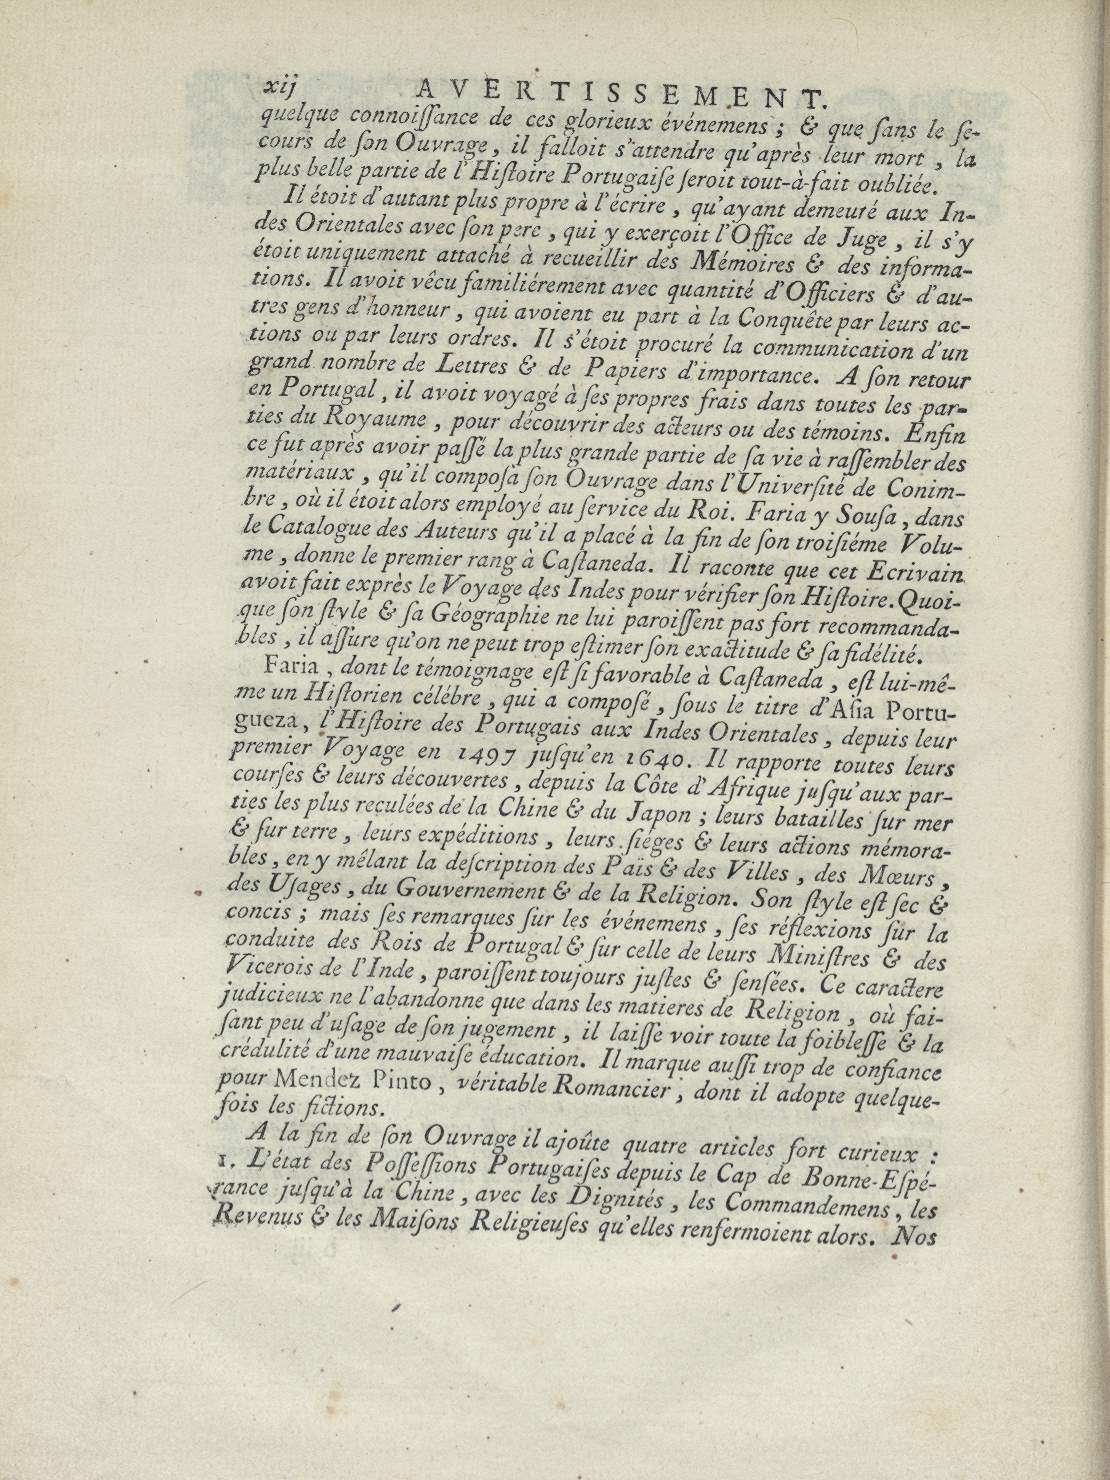 xij AVERTISSEMENT.
quelque connoiſſance de ces glorieux événemens ; & que ſans le ſe-
cours de ſon Ouvrage, il falloit s'attendre qu'après leur mort, la
plus belle partie de l'Hiſtoire Portugaiſe ſeroit tout-à-fait oubliée.
Il étoit d'autant plus propre à l'écrire, qu'ayant demeuré aux In-
des Orientales avec ſon pere, qui y exerçoit l'Office de Juge, il s'y
étoit uniquement attaché à recueillir des Mémoires & des informa-
tions. Il avoit vêcu familiérement avec quantité d'Officiers & d'au-
tres gens d'honneur, qui avoient eu part à la Conquête par leurs ac-
tions ou par leurs ordres. Il s'étoit procuré la communication d'un
grand nombre de Lettres & de Papiers d'importance. A ſon retour
en Portugal, il avoit voyagé à ſes propres frais dans toutes les par-
ties du Royaume, pour découvrir des acteurs ou des témoins. Enfin
ce fut après avoir paſſé la plus grande partie de ſa vie à raſſembler des
matériaux, qu'il compoſa ſon Ouvrage dans l'Univerſité de Conim-
bre, où il étoit alors employé au ſervice du Roi. Faria y Souſa, dans
le Catalogue des Auteurs qu'il a placé à la fin de ſon troiſiéme Volu-
me, donne le premier rang à Caſtaneda. Il raconte que cet Ecrivain
avoit fait exprès le Voyage des Indes pour vérifier ſon Hiſtoire. Quoi-
que ſon ſtyle & ſa Géographie ne lui paroiſſent pas fort recommanda-
bles, il aſſure qu'on ne peut trop eſtimer ſon exactitude & ſa fidélité.
Faria, dont le témoignage eſt ſi favorable à Caſtaneda, eſt lui-mê-
me un Hiſtorien célébre, qui a compoſé, ſous le titre d'Aſia Portu-
gueza, l'Hiſtoire des Portugais aux Indes Orientales, depuis leur
premier Voyage en 1497 juſqu'en 1640. Il rapporte toutes leurs
courſes & leurs découvertes, depuis la Côte d'Afrique juſqu'aux par-
ties les plus reculées de la Chine & du Japon ; leurs batailles ſur mer
& ſur terre, leurs expéditions, leurs ſiéges & leurs actions mémora-
bles, en y mêlant la deſcription des Païs & des Villes, des Mœurs,
des Uſages, du Gouvernement & de la Religion. Son ſtyle eſt ſec &
concis ; mais ſes remarques ſur les événemens, ſes réflexions ſur la
conduite des Rois de Portugal & ſur celle de leurs Miniſtres & des
Vicerois de l'Inde, paroiſſent toujours juſtes & ſenſées. Ce caractere
judicieux ne l'abandonne que dans les matieres de Religion, où fai-
ſant peu d'uſage de ſon jugement, il laiſſe voir toute la foibleſſe & la
crédulité d'une mauvaiſe éducation. Il marque auſſi trop de confiance
pour Mendez Pinto, véritable Romancier, dont il adopte quelque-
fois les fictions.
A la fin de ſon Ouvrage il ajoûte quatre articles fort curieux :
1. L'état des Poſſeſſions Portugaiſes depuis le Cap de Bonne-Eſpé-
rance juſqu'à la Chine, avec les Dignités, les Commandemens, les
Revenus & les Maiſons Religieuſes qu'elles renfermoient alors. Nos